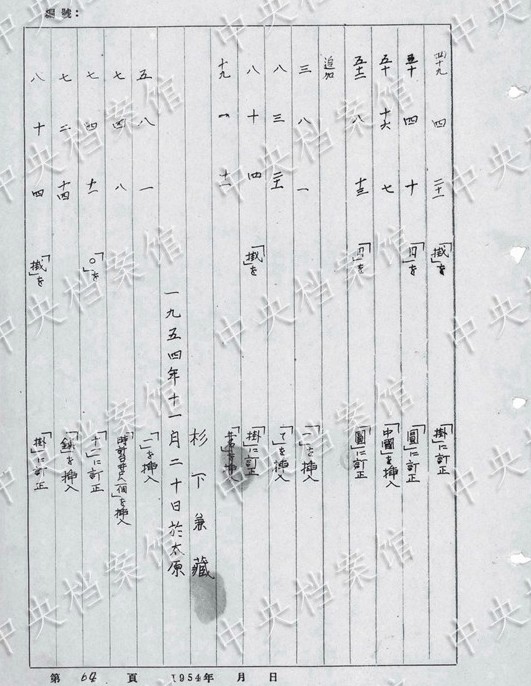 編號：
四十九 四 二十一 「掛」を 「掛」に訂正
五十 四 十 「円」を 「圓」に訂正
五十 十六 七 「中國」を挿入
五十三 八 十三 「円」を 「圓」に訂正
追加
三 八 一 「一」を挿入
八 三 二十一 「て」を挿入
八 十 四 「掛」を 「掛」に訂正
十九 一 十一
杉下兼蔵
一九五四年十一月二十日於太原
五 八 一 「一」を挿入
七 四 八 を挿入
七 四 十一 「〇」を 「十一」に訂正
七 二 十四 を挿入
八 十 四 「掛」を 「掛」に訂正
第 64 頁 1954年 月 日
中央档案馆